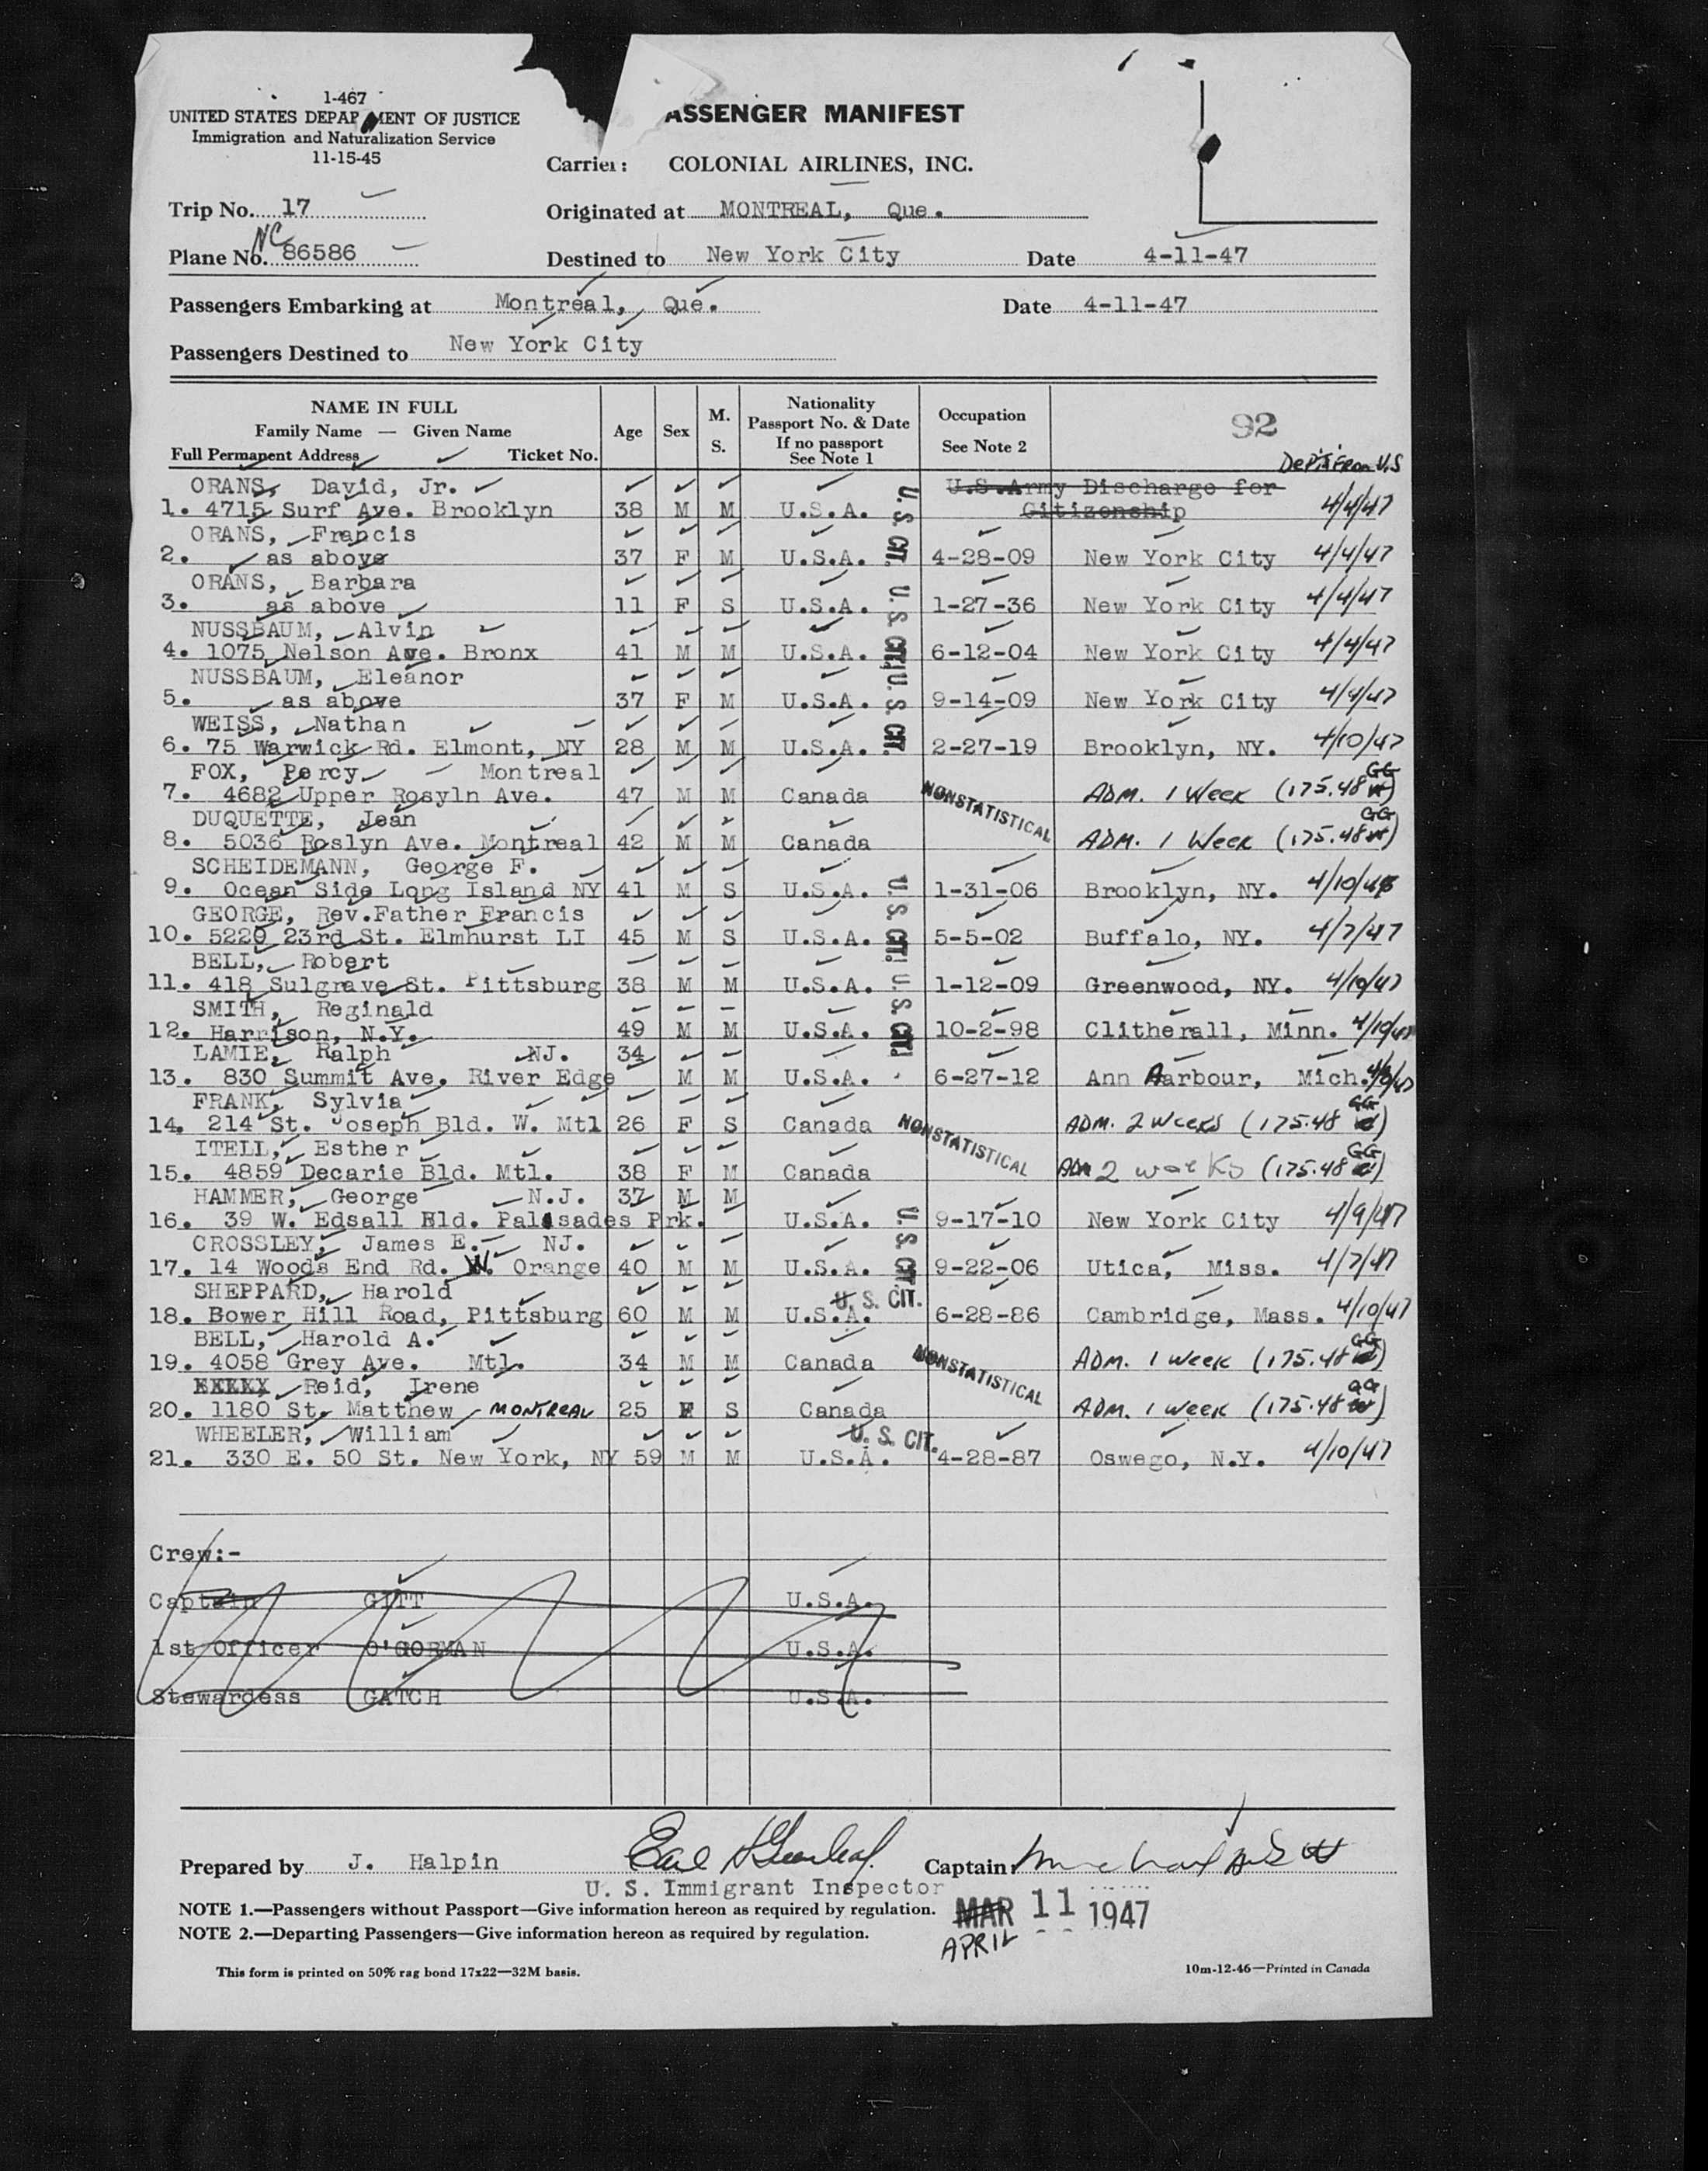 1-467
UNITED STATES DEPAR MENT OF JUSTICE
Immigration and Naturalization Service
11-15-45
ASSENGER MANIFEST
Carrier: COLONIAL AIRLINES, INC.
Trip No. 17
Originated at MONTREAL, Que.
NC
Plane No. 86586
Destined to New York City
Date 4-11-47
Passengers Embarking at Montreal, Que.
Date 4-11-47
Passengers Destined to New York City
NAME IN FULL
Family Name — Given Name
Full Permanent Address Ticket No.
Age
Sex
M.
S.
Nationality
Passport No. & Date
If no passport
See Note 1
Occupation
See Note 2
92
Dep't From U.S
ORANS, David, Jr. U.S.Army Discharge for
1. 4715 Surf Ave. Brooklyn 38 M M U.S.A. Citizenship 4/4/47
ORANS, Francis
2. as above 37 F M U.S.A. 4-28-09 New York City 4/4/47
ORANS, Barbara
3. as above 11 F S U.S.A. 1-27-36 New York City 4/4/47
NUSSBAUM, Alvin
4. 1075 Nelson Ave. Bronx 41 M M U.S.A. 6-12-04 New York City 4/4/47
NUSSBAUM, Eleanor
5. as above 37 F M U.S.A. 9-14-09 New York City 4/4/47
WEISS, Nathan
6. 75 Warwick Rd. Elmont, NY 28 M M U.S.A. 2-27-19 Brooklyn, NY. 4/10/47
FOX, Percy Montreal GG
7. 4682 Upper Rosyln Ave. 47 M M Canada NONSTATISTICAL ADM. 1 Week (175.48)
DUQUETTE, Jean GG
8. 5036 Roslyn Ave. Montreal 42 M M Canada ADM. 1 Week (175.48)
SCHEIDEMANN, George F.
9. Ocean Side Long Island NY 41 M S U.S.A. 1-31-06 Brooklyn, NY. 4/10/47
GEORGE, Rev.Father Francis
10. 5220 23rd St. Elmhurst LI 45 M S U.S.A. 5-5-02 Buffalo, NY. 4/7/47
BELL, Robert
11. 418 Sulgrave St. Pittsburg 38 M M U.S.A. 1-12-09 Greenwood, NY. 4/10/47
SMITH, Reginald
12. Harrison, N.Y. 49 M M U.S.A. 10-2-98 Clitherall, Minn. 4/10/47
LAMIE, Ralph NJ. 34
13. 830 Summit Ave. River Edge M M U.S.A. 6-27-12 Ann Aarbour, Mich.
FRANK, Sylvia GG
14. 214 St. Joseph Bld. W. Mtl 26 F S Canada NONSTATISTICAL ADM. 2 Weeks (175.48)
ITELL, Esther GG
15. 4859 Decarie Bld. Mtl. 38 F M Canada ADM 2 weeks (175.48)
HAMMER, George N.J. 37 M M
16. 39 W. Edsall Bld. Palasades Prk. U.S.A. 9-17-10 New York City 4/9/47
CROSSLEY, James E. NJ.
17. 14 Woods End Rd. W. Orange 40 M M U.S.A. 9-22-06 Utica, Miss. 4/7/47
SHEPPARD, Harold U. S. CIT.
18. Bower Hill Road, Pittsburg 60 M M U.S.A. 6-28-86 Cambridge, Mass. 4/10/47
BELL, Harold A. GG
19. 4058 Grey Ave. Mtl. 34 M M Canada NONSTATISTICAL ADM. 1 Week (175.48)
Reid, Irene GG
20. 1180 St. Matthew - MONTREAL 25 F S Canada ADM. 1 Week (175.48)
WHEELER, William U. S. CIT.
21. 330 E. 50 St. New York, NY 59 M M U.S.A. 4-28-87 Oswego, N.Y. 4/10/47
U.S. CIT.
U.S. CIT.
U.S. CIT.
U.S. CIT.
U.S. CIT.
U.S. CIT.
Crew:-
Captain GITT U.S.A.
1st Officer O'GORMAN U.S.A.
Stewardess GATCH U.S.A.
Prepared by J. Halpin
Captain:
U. S. Immigrant Inspector
NOTE 1.—Passengers without Passport—Give information hereon as required by regulation.
MAR 11 1947
NOTE 2.—Departing Passengers—Give information hereon as required by regulation.
APRIL
This form is printed on 50% rag bond 17x22—32M basis.
10m-12-46—Printed in Canada